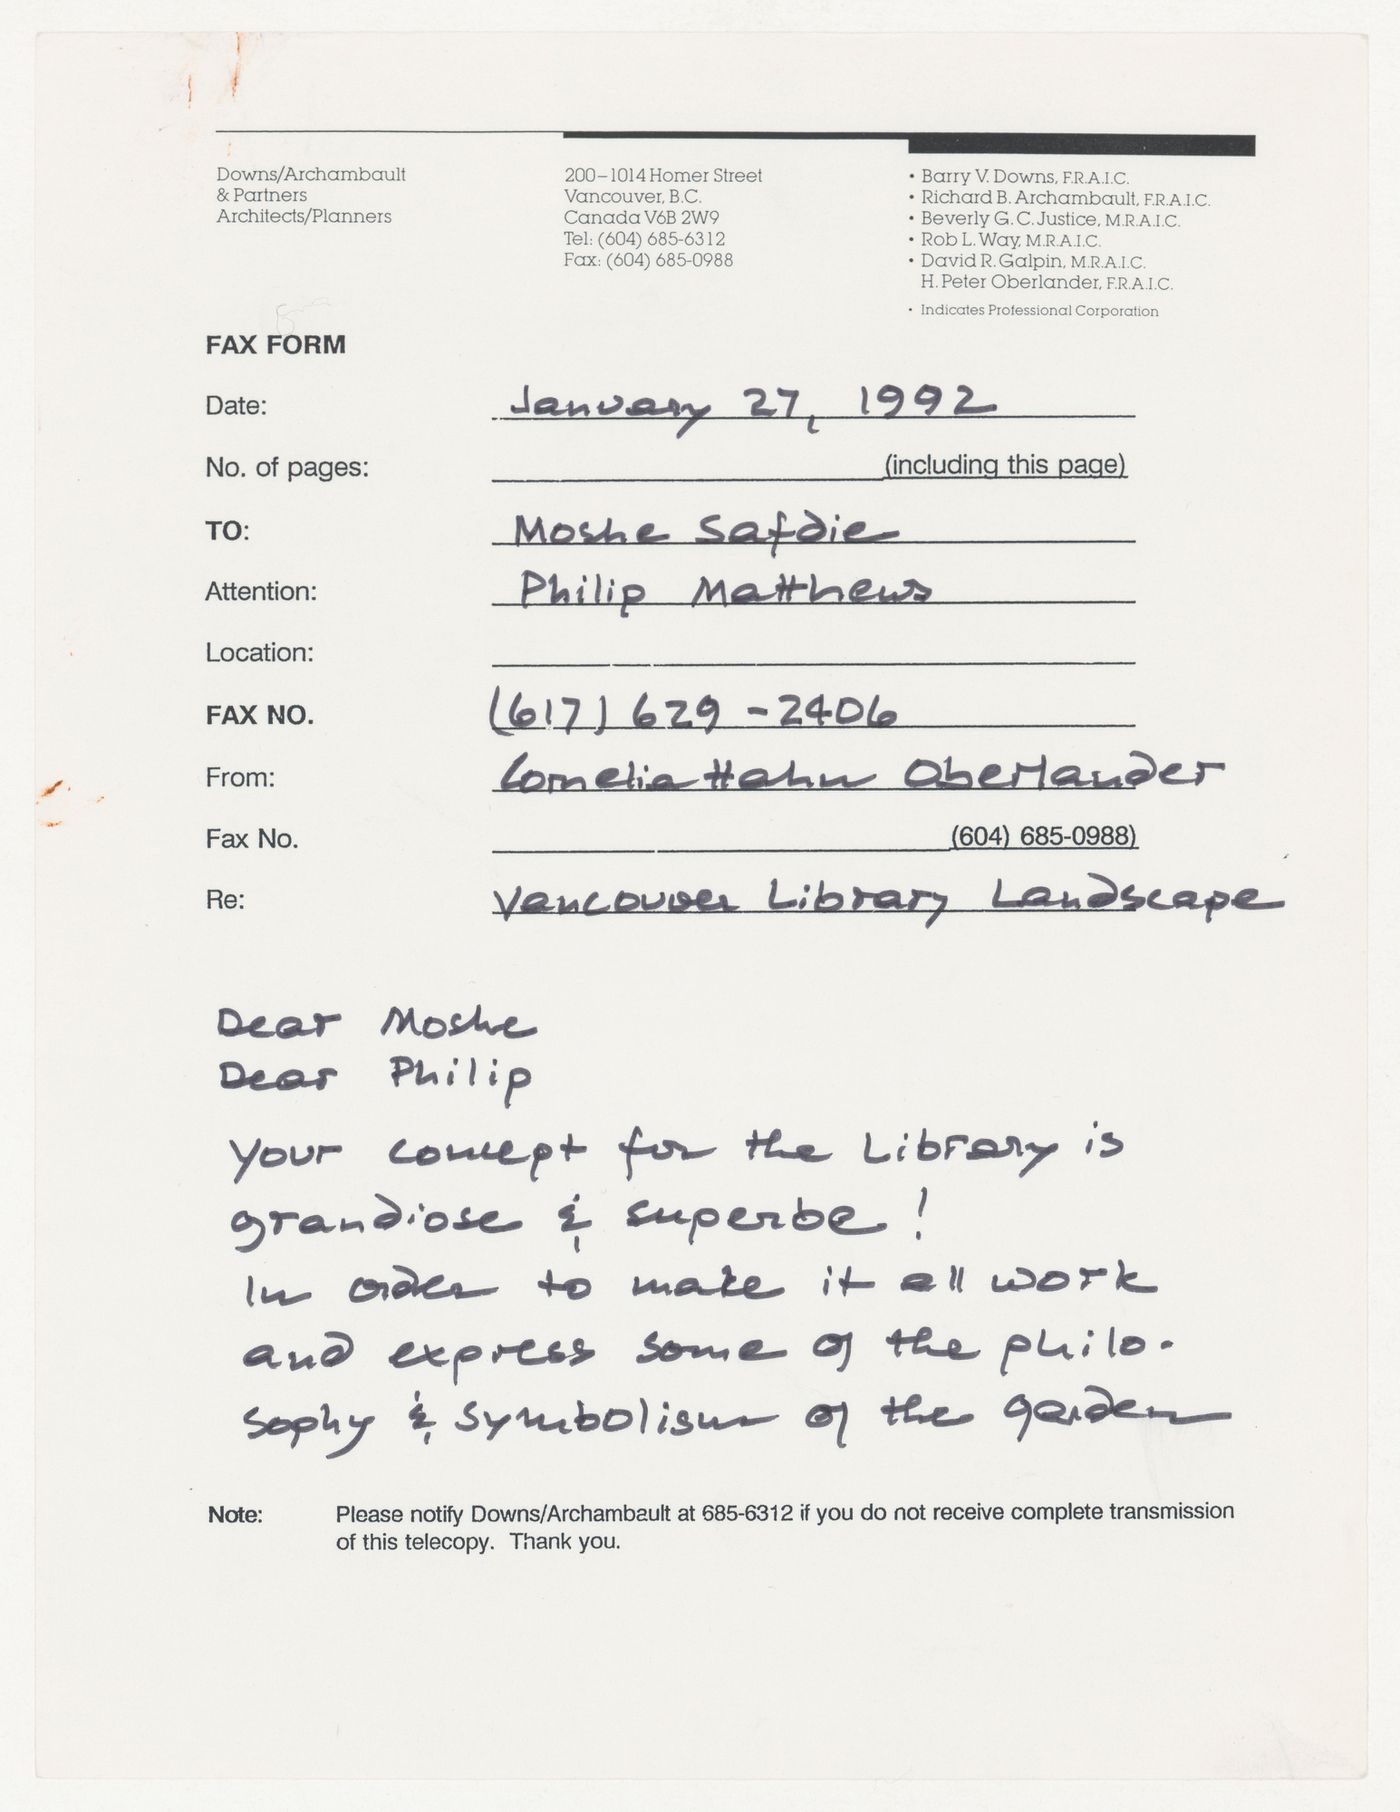 Downs/Archambault
& Partners
Architects/Planners
200–1014 Homer Street
Vancouver, B.C.
Canada V6B 2W9
Tel: (604) 685-6312
Fax: (604) 685-0988
• Barry V. Downs, F.R.A.I.C.
• Richard B. Archambault, F.R.A.I.C.
• Beverly G. C. Justice, M.R.A.I.C.
• Rob L. Way, M.R.A.I.C.
• David R. Galpin, M.R.A.I.C.
H. Peter Oberlander, F.R.A.I.C.
• Indicates Professional Corporation
FAX FORM
Date: January 27, 1992
No. of pages: (including this page)
TO: Moshe Safdie
Attention: Philip Matthews
Location:
FAX NO. (617) 629-2406
From: Cornelia Hahn Oberlander
Fax No. (604) 685-0988)
Re: Vancouver Library Landscape
Dear Moshe
Dear Philip
Your concept for the Library is
grandiose & superbe!
In order to make it all work
and express some of the philo-
sophy & symbolism of the garden
Note: Please notify Downs/Archambault at 685-6312 if you do not receive complete transmission
of this telecopy. Thank you.